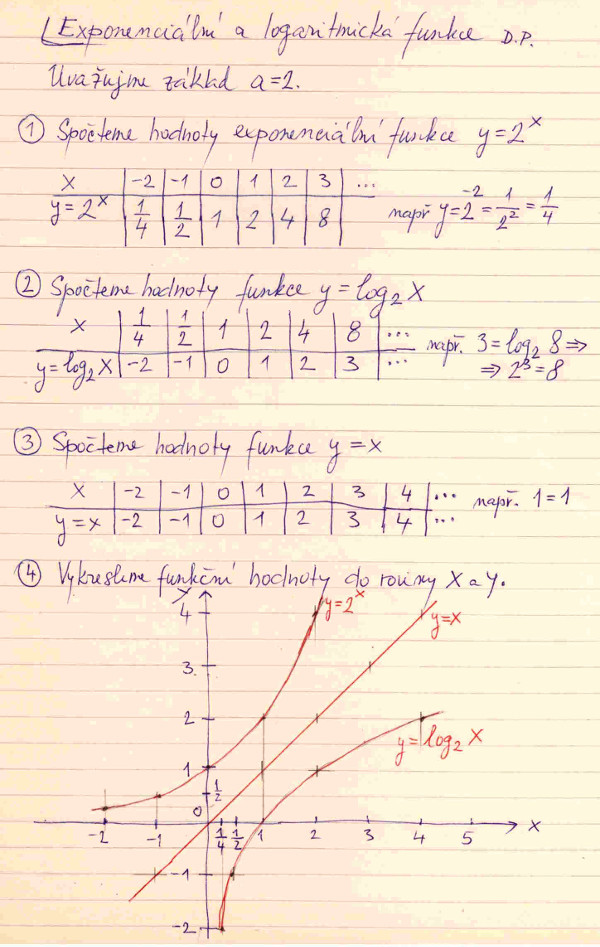 Exponenciální a logaritmická funkce D.P.
Uvažujme základ a=2.
① Spočteme hodnoty exponenciální funkce y=2^x
x | -2 | -1 | 0 | 1 | 2 | 3 | ...
y=2^x | 1/4 | 1/2 | 1 | 2 | 4 | 8 |
např y=2^-2=1/2^2=1/4
② Spočteme hodnoty funkce y=log₂x
x | 1/4 | 1/2 | 1 | 2 | 4 | 8 | ...
y=log₂x | -2 | -1 | 0 | 1 | 2 | 3 | ...
např. 3=log₂8 ⇒
⇒ 2^3=8
③ Spočteme hodnoty funkce y=x
x | -2 | -1 | 0 | 1 | 2 | 3 | 4 | ...
y=x | -2 | -1 | 0 | 1 | 2 | 3 | 4 | ...
např. 1=1
④ Vykreslíme funkční hodnoty do roviny x a y.
y
4
y=2^x
y=x
3
2
y=log₂x
1
1/2
0
-2 -1 1/4 1/2 1 2 3 4 5 x
-1
-2